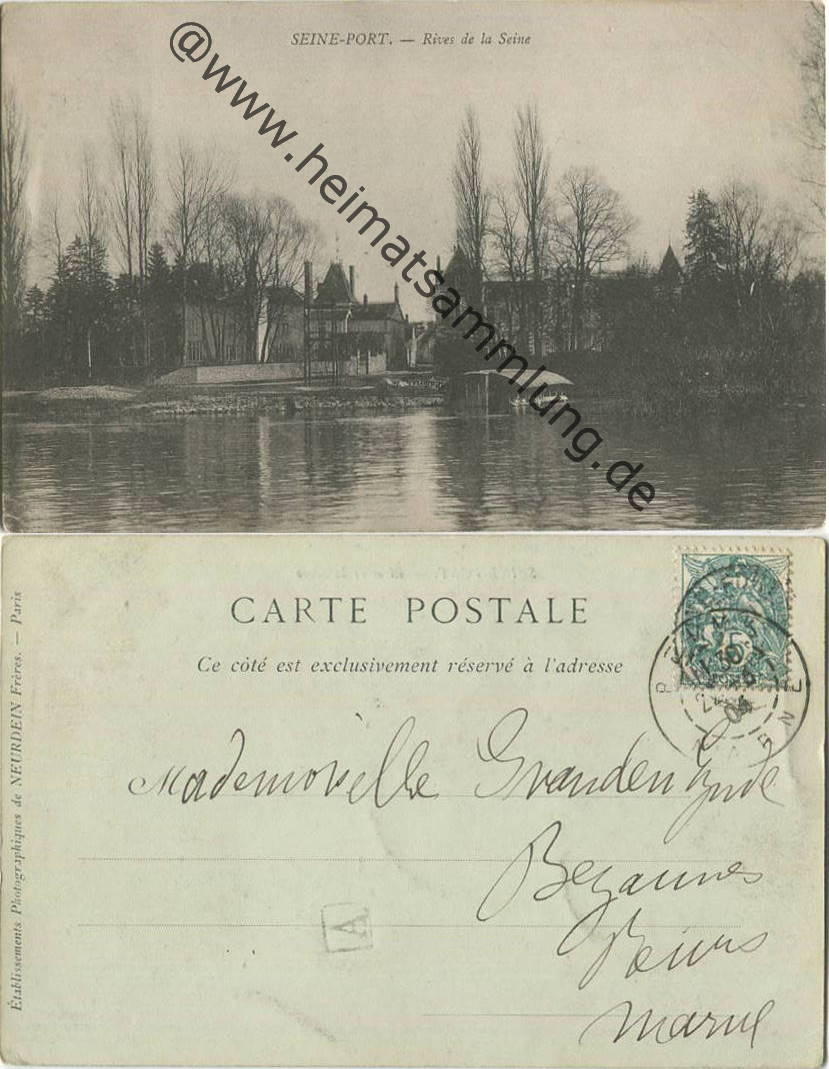 SEINE-PORT. — Rives de la Seine
@www.heimatsammlung.de
CARTE POSTALE
Ce côté est exclusivement réservé à l'adresse
Établissements Photographiques de NEURDEIN Frères. — Paris
5
04
Mademoiselle
Bezannes
Reims
Marne
A